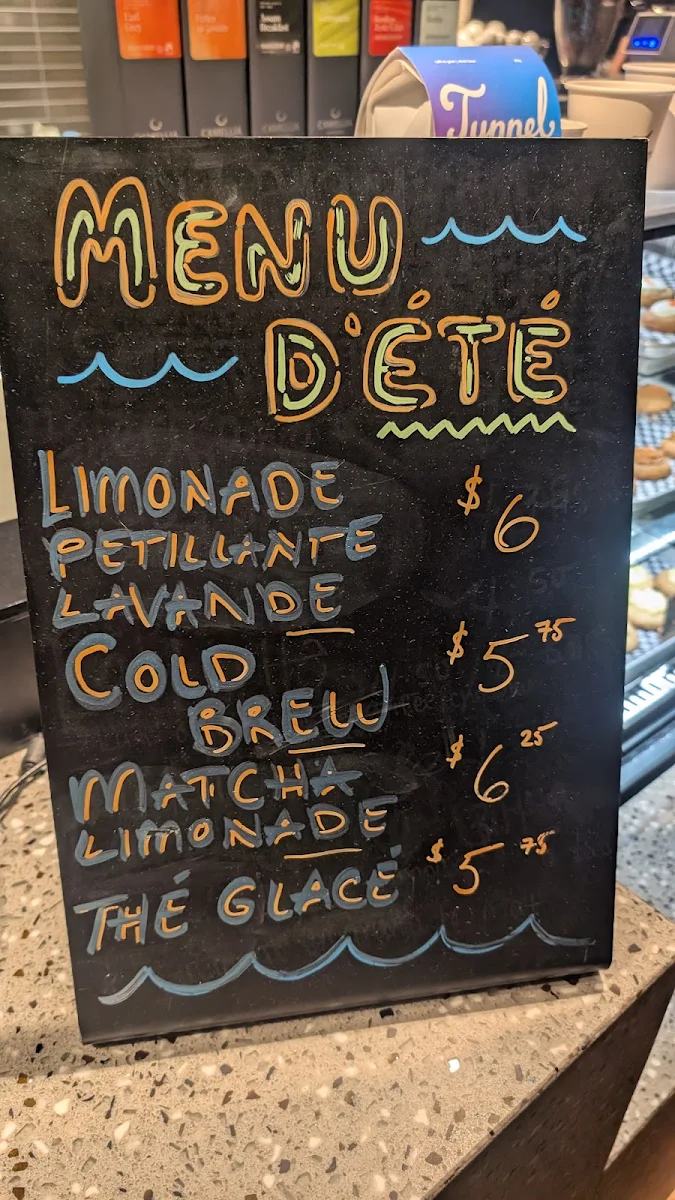 Earl
Grey
CAMELLIA
Tunnel
MENU
D'ÉTÉ
LIMONADE
PETILLANTE
LAVANDE
$6
COLD
BREW
$5 75
MATCHA
LIMONADE
$6 25
THÉ GLACÉ
$5 75